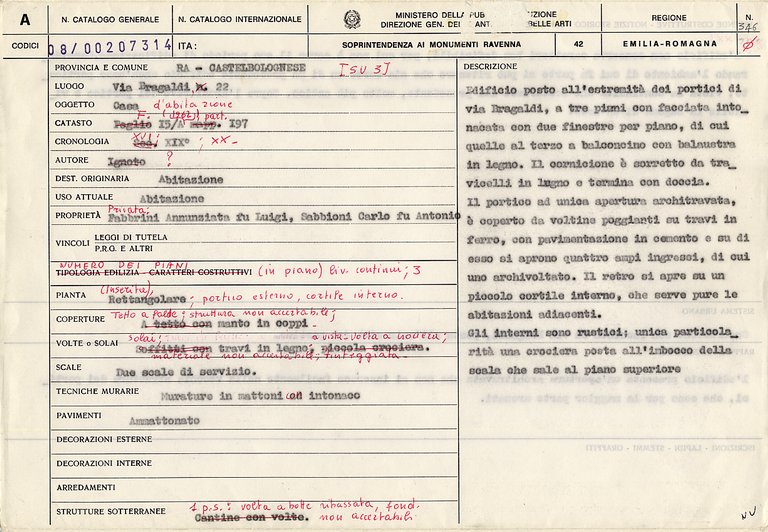 A
N. CATALOGO GENERALE
N. CATALOGO INTERNAZIONALE
MINISTERO DELLA PUB
IZIONE
DIREZIONE GEN. DEI ANT.
BELLE ARTI
REGIONE
N.
376
CODICI
08/00207314
ITA:
SOPRINTENDENZA AI MONUMENTI RAVENNA
42
EMILIA-ROMAGNA
PROVINCIA E COMUNE RA - CASTELBOLOGNESE [SU 3]
LUOGO Via Bragaldi, n. 22
OGGETTO Casa d'abitazione
CATASTO Foglio F. 15/A (1962) mapp. part. 197
CRONOLOGIA Sec. XVI; XIX° ; XX-
AUTORE Ignoto ?
DEST. ORIGINARIA Abitazione
USO ATTUALE Abitazione
PROPRIETÀ Privata; Fabbrini Annunziata fu Luigi, Sabbioni Carlo fu Antonio
VINCOLI
LEGGI DI TUTELA
P.R.G. E ALTRI
NUMERO DEI PIANI
TIPOLOGIA EDILIZIA - CARATTERI COSTRUTTIVI (in piano) liv. continui; 3
PIANTA (Inserita), Rettangolare; portico esterno, cortile interno.
COPERTURE Tetto a falde; struttura non accertabile;
A tetto con manto in coppi.
VOLTE o SOLAI solai; a vista - volta a crociera;
Soffitti con travi in legno; piccola crociera.
materiale non accertabile; tinteggiata.
SCALE Due scale di servizio.
TECNICHE MURARIE Murature in mattoni ad intonaco
PAVIMENTI Ammattonato
DECORAZIONI ESTERNE
DECORAZIONI INTERNE
ARREDAMENTI
STRUTTURE SOTTERRANEE 1 p.s.: volta a botte ribassata, fond.
Cantine con volte. non accertabili
DESCRIZIONE
Edificio posto all'estremità dei portici di
via Bragaldi, a tre piani con facciata into_
nacata con due finestre per piano, di cui
quelle al terzo a balconcino con balaustra
in legno. Il cornicione è sorretto da tra_
vicelli in lugno e termina con doccia.
Il portico ad unica apertura architravata,
è coperto da voltine poggianti su travi in
ferro, con pavimentazione in cemento e su di
esso si aprono quattro ampi ingressi, di cui
uno archivoltato. Il retro si apre su un
piccolo cortile interno, che serve pure le
abitazioni adiacenti.
Gli interni sono rustici; unica particola_
rità una crociera posta all'imbocco della
scala che sale al piano superiore